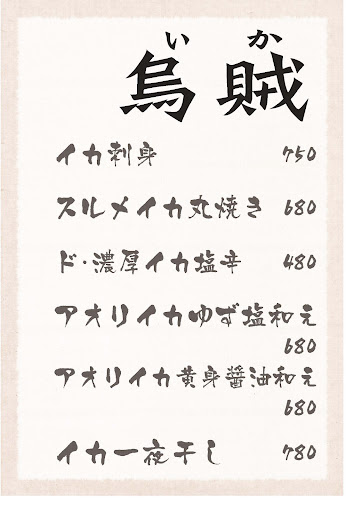 いか
烏賊
イカ刺身 750
スルメイカ丸焼き 680
ド・濃厚イカ塩辛 480
アオリイカゆず塩和え
680
アオリイカ黄身醤油和え
680
イカ一夜干し 780